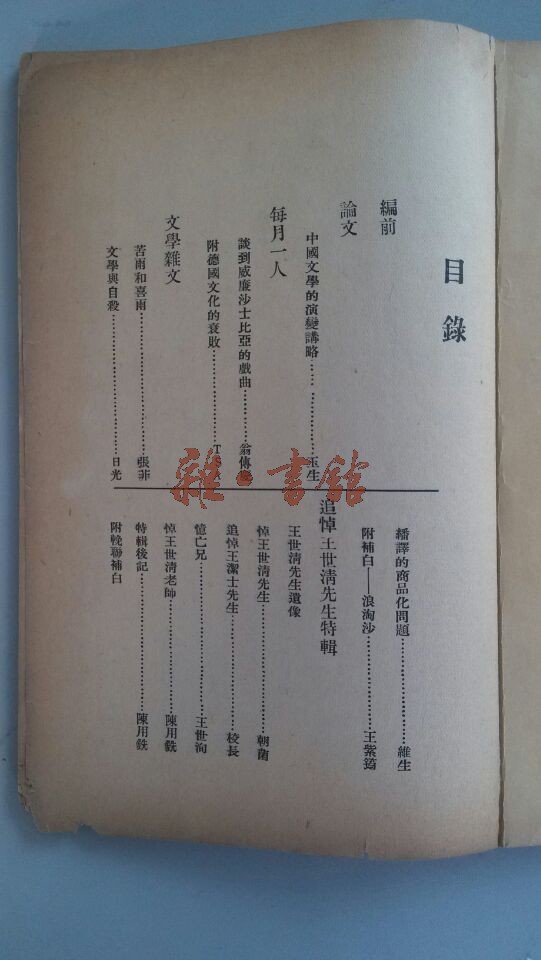 目錄
編前
論文
中國文學的演變講略……………玉生
每月一人
談到威廉沙士比亞的戲曲…………翁傳
附德國文化的衰敗……………
文學雜文
苦雨和喜雨……………張菲
文學與自殺……………日光
繙譯的商品化問題……………維生
附補白——浪淘沙……………王紫
追悼王世淸先生特輯
王世淸先生遺像
悼王世淸先生……………朝蘭
追悼王潔士先生……………校長
憶亡兄……………王世洵
悼王世淸老師……………陳用銑
特輯後記……………陳用銑
附輓聯補白
雜·書館